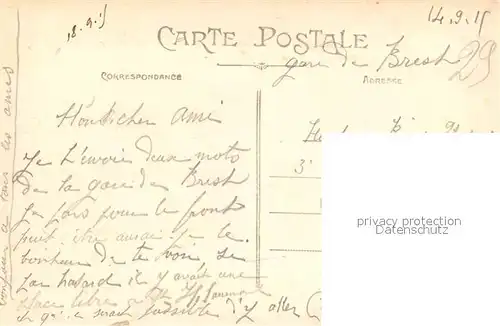 18.9.15
14.9.15
CARTE POSTALE
gare de Brest
29
CORRESPONDANCE
ADRESSE
Mon cher ami
Je t'envoie deux mots
de la gare de Brest
Je pars pour le front
peut être aurai-je le
bonheur de te voir se
par hasard il y avait une
place libre
possible d'y aller
bonjour a tous les amis
3e
privacy protection
Datenschutz